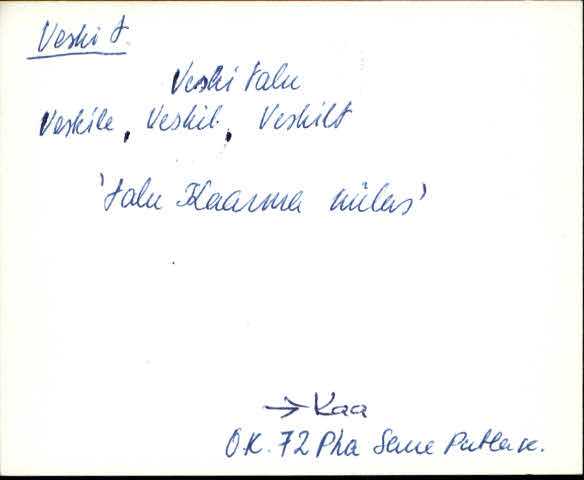 Veski t.
Veski talu
Veskile, Veskil, Veskilt
'talu Kaarma külas'
→ Kaa
O.K. 72 Pha